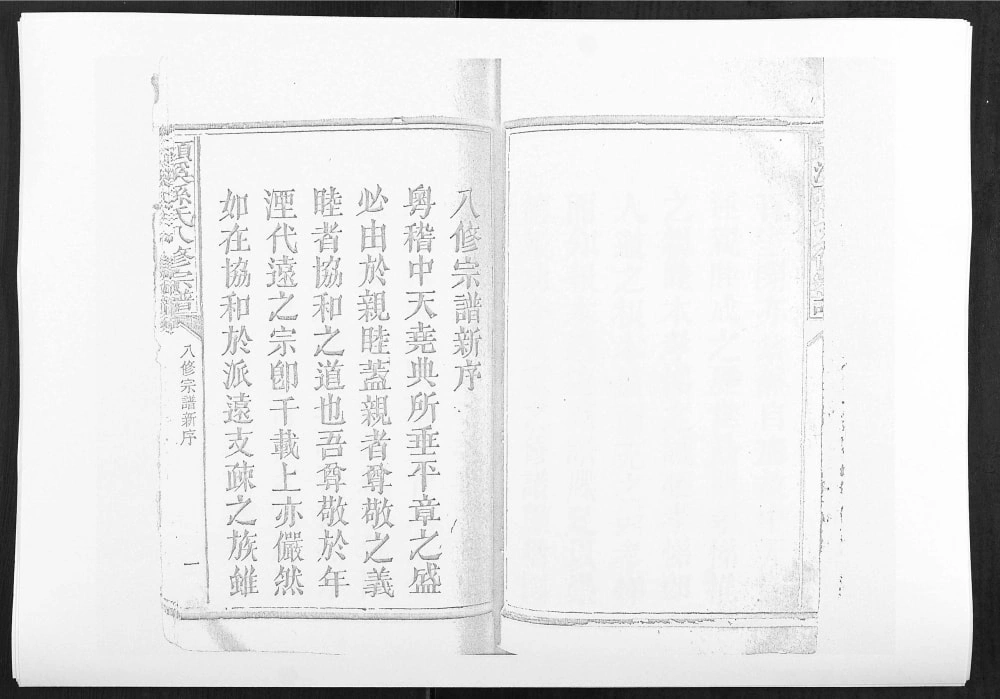 八修宗譜新序
粵稽中天堯典所垂平章之盛
必由於親睦蓋親者尊敬之義
睦者協和之道也吾尊敬於年
湮代遠之宗卽千載上亦儼然
如在協和於派遠支疎之族雖
孫氏八修宗譜
八修宗譜新序
一